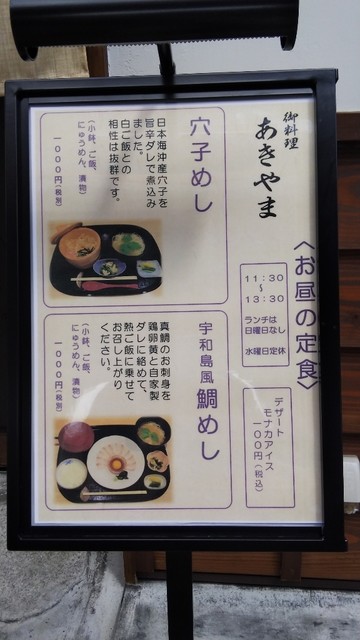 御料理
あきやま
〈お昼の定食〉
11:30
～
13:30
ランチは
日曜日なし
水曜日定休
デザート
モナカアイス
一〇〇円（税込）
穴子めし
日本海沖産穴子を
旨辛ダレで煮込み
ました。
白ご飯との
相性は抜群です。
（小鉢、ご飯、
にゅうめん、漬物）
一〇〇〇円（税別）
宇和島風
鯛めし
真鯛のお刺身を
鶏卵黄と自家製
ダレに絡めて、
熱ご飯に乗せて
お召し上がり
ください。
（小鉢、ご飯、
にゅうめん、漬物）
一〇〇〇円（税別）